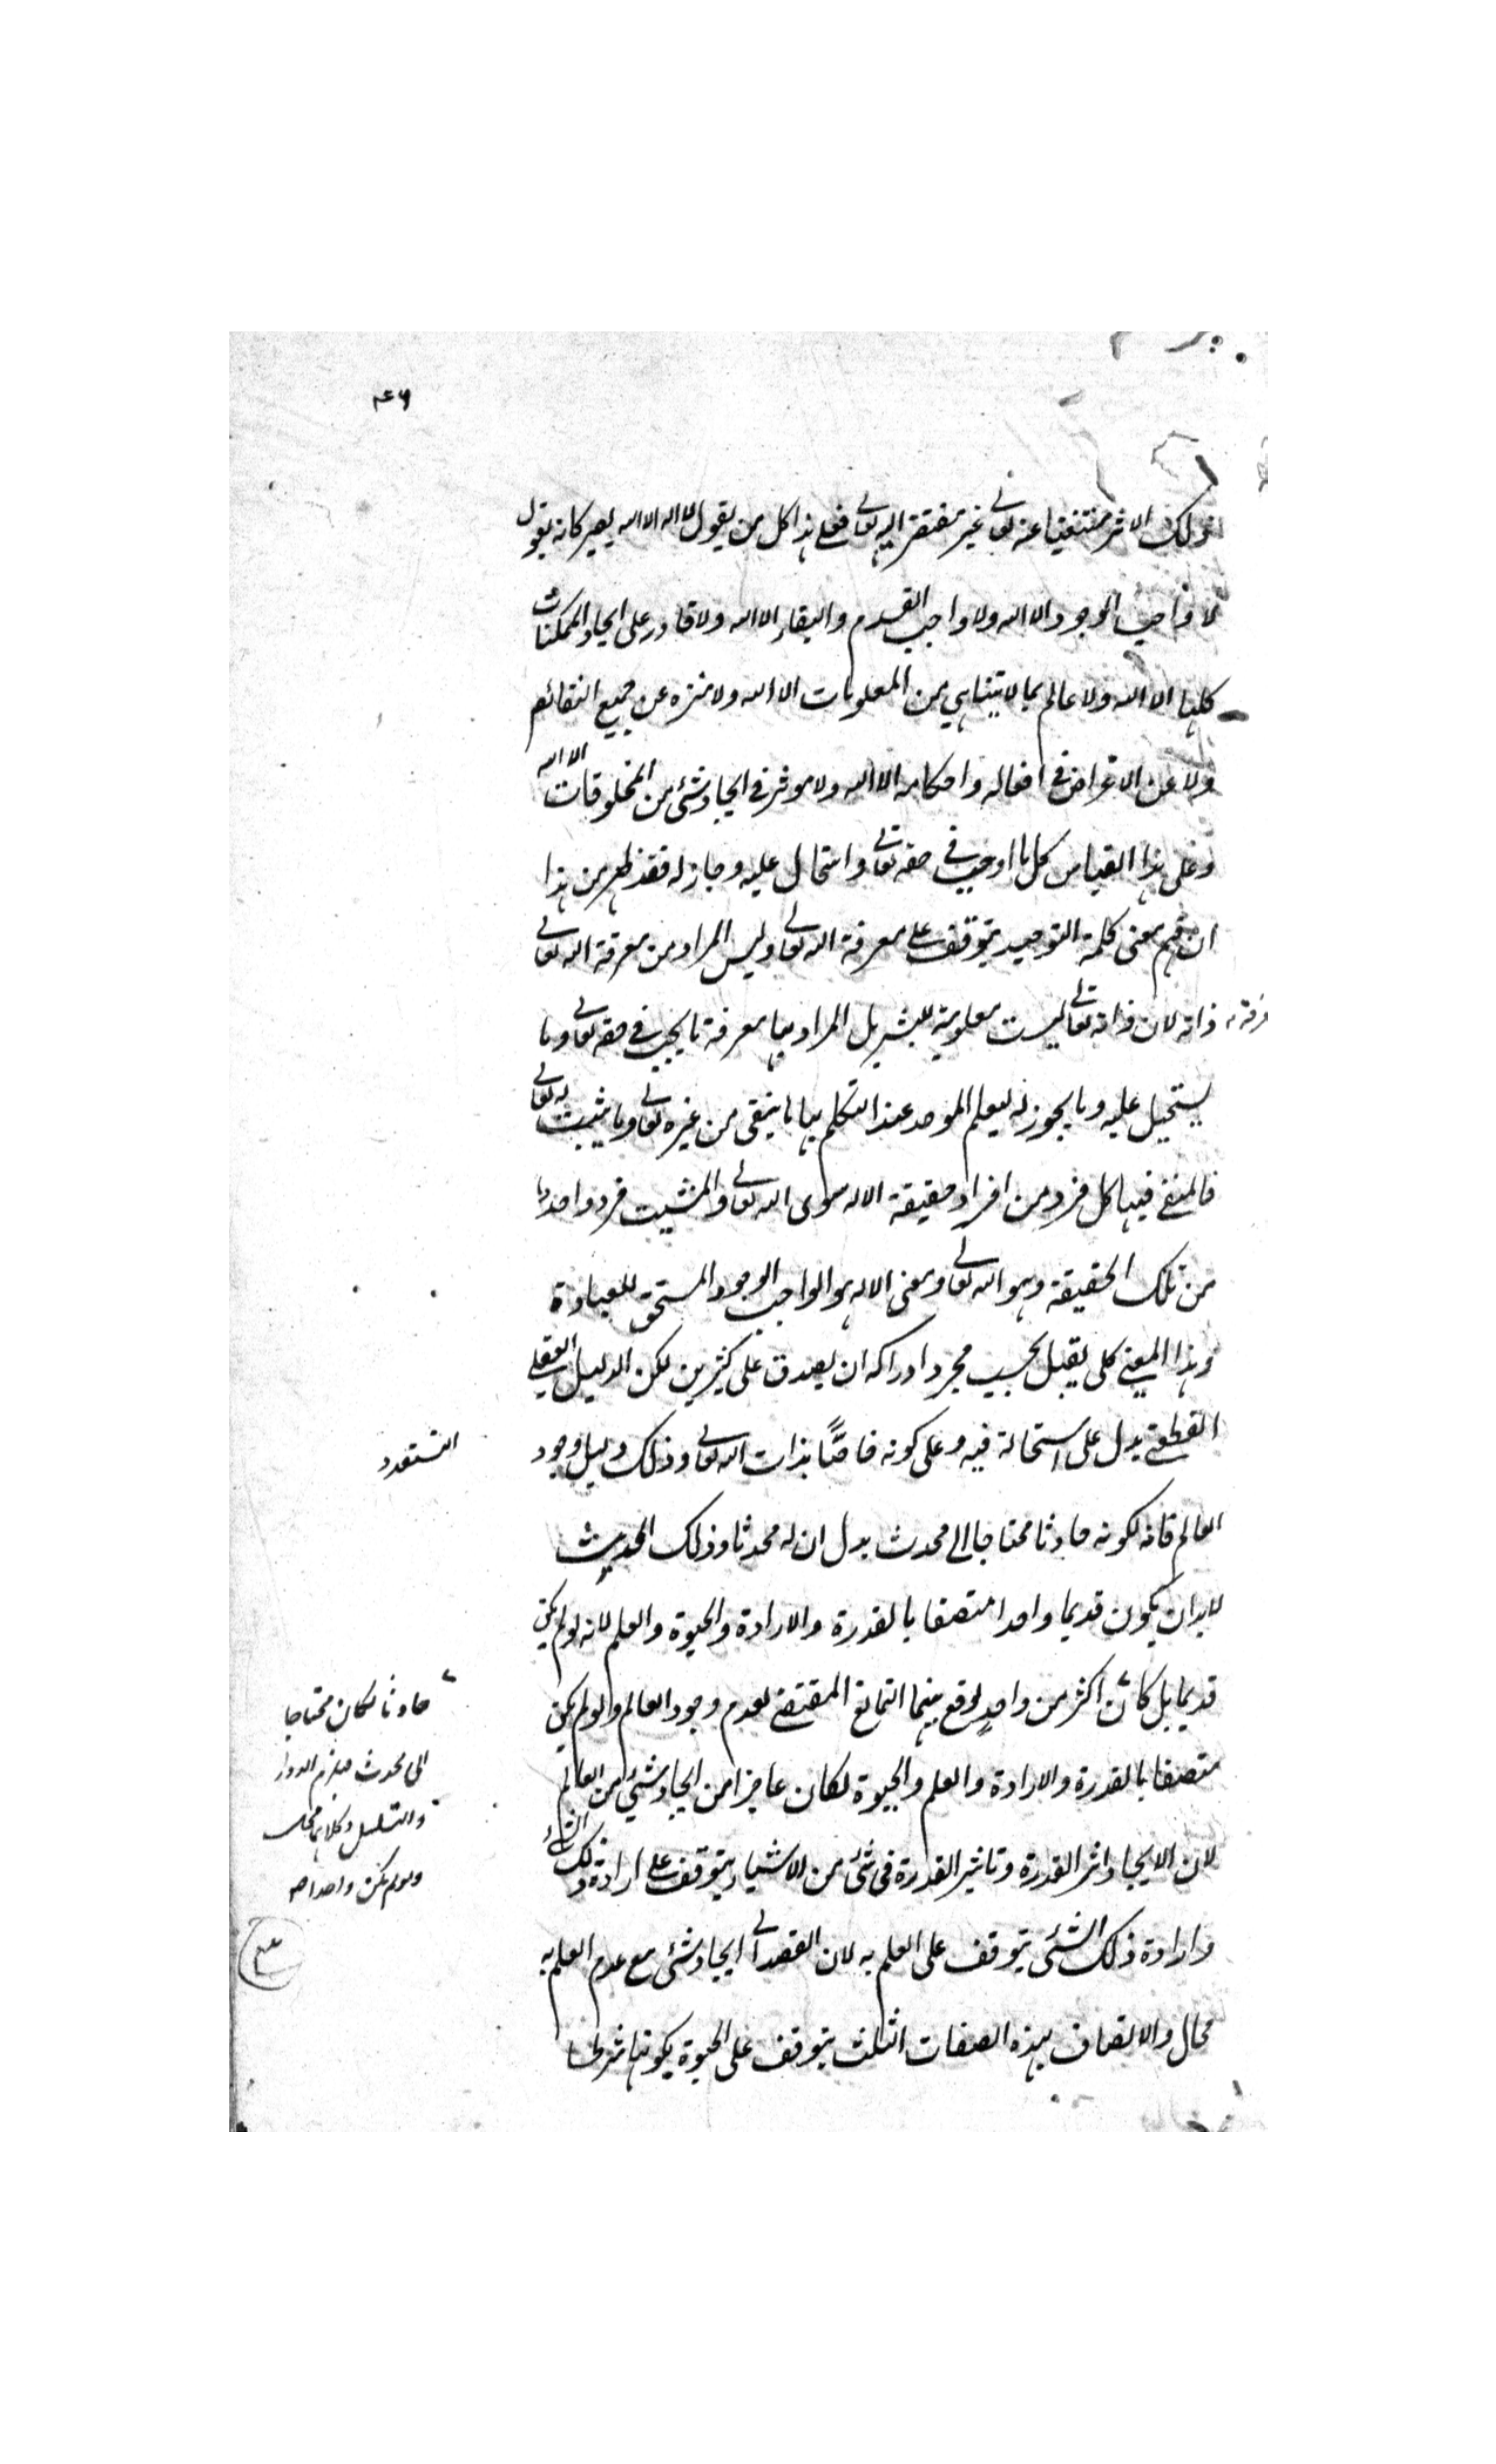 ذلك الاثر مستغنيا عنه تعالى غير مفتقر اليه تعالى فعلى هذا كل من يقول لا اله الا الله يصير كانه يقول
لا واجب الوجود الا الله ولا واجب القدم والبقاء الا الله ولا قادر على ايجاد الممكنات
كلها الا الله ولا عالم بما لا يتناهى من المعلومات الا الله ولا منزه عن جميع النقائص
ولا عن الاغراض في افعاله واحكامه الا الله ولا موثر في ايجاد شئ من المخلوقات الا الله
وعلى هذا القياس كل ما اوجب في حقه تعالى واستحال عليه وجاز له فقد ظهر من هذا
ان فهم معنى كلمة التوحيد يتوقف على معرفة الله تعالى وليس المراد من معرفة الله تعالى
معرفة ذاته لان ذاته تعالى ليست معلومة للبشر بل المراد بها معرفة ما يجب في حقه تعالى وما
يستحيل عليه وما يجوز له ليعلم الموحد عند التكلم بها ما ينتفى من غيره تعالى وما يثبت له تعالى
فالمنفى فيها كل فرد من افراد حقيقة الاله سوى الله تعالى والمثبت فرد واحد
من تلك الحقيقة وهو الله تعالى ومعنى الاله هو الواجب الوجود المستحق للعبادة
وهذا المعنى كلى يقبل بحسب مجرد ادراكه ان يصدق على كثيرين لكن الدليل العقلى
القطعى يدل على استحالة فيه وعلى كونه خاصًّا بذات الله تعالى وذلك دليل وجود
التعدد
العالم فانه لكونه حادثا محتاجا الى محدث يدل ان له محدثا وذلك المحدث
لابد ان يكون قديما واحدا متصفا بالقدرة والارادة والحيوة والعلم لانه لو لم يكن
قديما بل كان اكثر من واحد لوقع بينهما التمانع المقتضى لعدم وجود العالم ولو لم يكن
حادثا لكان محتاجا
الى محدث فيلزم الدور
والتسلسل وكلاهما محال
ولو لم يكن واحدا صح
متصفا بالقدرة والارادة والعلم والحيوة لكان عاجزا من ايجاد شئ من العالم
لان الايجاد اثر القدرة وتاثير القدرة فى شئ من الاشياء يتوقف على ارادة ذلك الشئ
وارادة ذلك الشئ يتوقف على العلم به لان القصد الى ايجاد شئ مع عدم العلم به
محال والاتصاف بهذه الصفات الثلث يتوقف على الحيوة لكونها شرطا